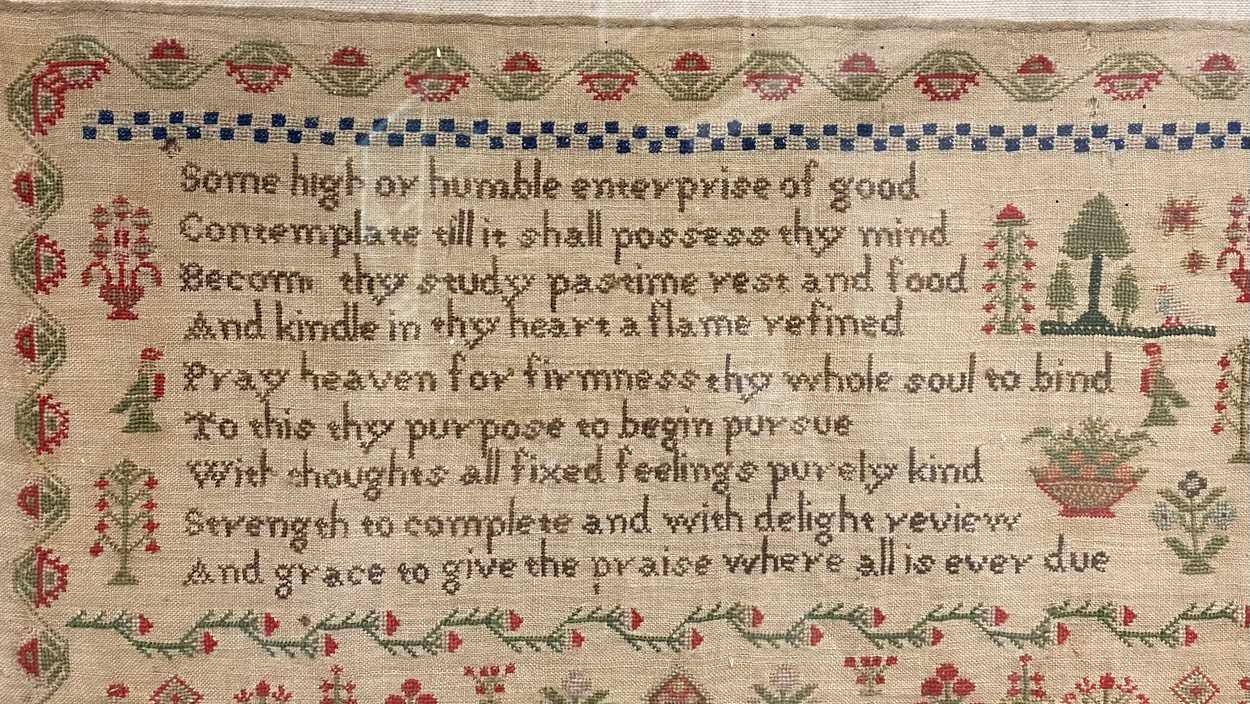 Some high or humble enterprise of good
Contemplate till it shall possess thy mind
Becom thy study pastime rest and food
And kindle in thy heart a flame refined
Pray heaven for firmness thy whole soul to bind
To this thy purpose to begin pursue
With thoughts all fixed feelings purely kind
Strength to complete and with delight review
And grace to give the praise where all is ever due